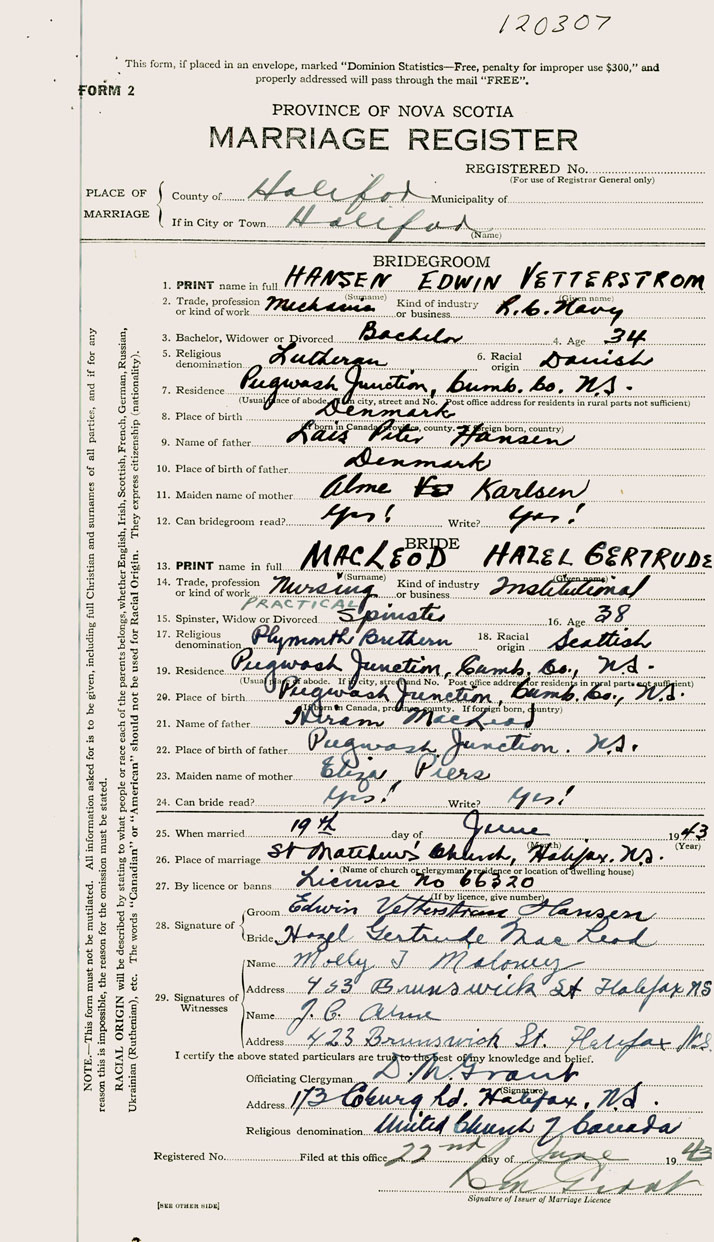 120307
This form, if placed in an envelope, marked “Dominion Statistics—Free, penalty for improper use $300,” and
properly addressed will pass through the mail “FREE”.
FORM 2
PROVINCE OF NOVA SCOTIA
MARRIAGE REGISTER
REGISTERED No.
(For use of Registrar General only)
PLACE OF MARRIAGE
County of Halifax Municipality of
If in City or Town Halifax
(Name)
BRIDEGROOM
1. PRINT name in full HANSEN EDWIN VETTERSTROM
(Surname) (Given name)
2. Trade, profession or kind of work Mechanic Kind of industry or business R.C. Navy
3. Bachelor, Widower or Divorced Bachelor 4. Age 34
5. Religious denomination Lutheran 6. Racial origin Danish
7. Residence Pugwash Junction, Cumb. Co. N.S.
(Usual place of abode. If in city, street and No. Post office address for residents in rural parts not sufficient)
8. Place of birth Denmark
(If born in Canada, province, county. If foreign born, country)
9. Name of father Lais Peter Hansen
10. Place of birth of father Denmark
11. Maiden name of mother Alme Karlsen
12. Can bridegroom read? Yes! Write? Yes!
BRIDE
13. PRINT name in full MACLEOD HAZEL GERTRUDE
(Surname) (Given name)
14. Trade, profession or kind of work Nursing Kind of industry or business Institutional
PRACTICAL
15. Spinster, Widow or Divorced Spinster 16. Age 38
17. Religious denomination Plymouth Brethern 18. Racial origin Scottish
19. Residence Pugwash Junction, Cumb. Co., N.S.
(Usual place of abode. If in city, street and No. Post office address for residents in rural parts not sufficient)
20. Place of birth Pugwash Junction, Cumb. Co., N.S.
(If born in Canada, province, county. If foreign born, country)
21. Name of father Hiram MacLeod
22. Place of birth of father Pugwash Junction. N.S.
23. Maiden name of mother Eliza Piers
24. Can bride read? Yes! Write? Yes!
25. When married 19th day of June 1943
(Month) (Year)
26. Place of marriage St Matthews' Church, Halifax. N.S.
(Name of church or clergyman's residence or location of dwelling house)
27. By licence or banns License No 66320
(If by licence, give number)
28. Signature of
Groom Edwin Vetterstrom Hansen
Bride Hazel Gertrude MacLeod
29. Signatures of Witnesses
Name Molly I Maloney
Address 423 Brunswick St Halifax NS
Name J. C.
Address 423 Brunswick St. Halifax N.S.
I certify the above stated particulars are true to the best of my knowledge and belief.
Officiating Clergyman D. M. Grant
(Signature)
Address 173 Coburg Rd. Halifax, N.S.
Religious denomination United Church of Canada
Registered No. Filed at this office 22nd day of June 1943
D M Grant
Signature of Issuer of Marriage Licence
[SEE OTHER SIDE]
NOTE.—This form must not be mutilated. All information asked for is to be given, including full Christian and surnames of all parties, and if for any
reason this is impossible, the reason for the omission must be stated.
RACIAL ORIGIN will be described by stating to what people or race each of the parents belongs, whether English, Irish, Scottish, French, German, Russian,
Ukrainian (Ruthenian), etc. The words “Canadian” or “American” should not be used for Racial Origin. They express citizenship (nationality).